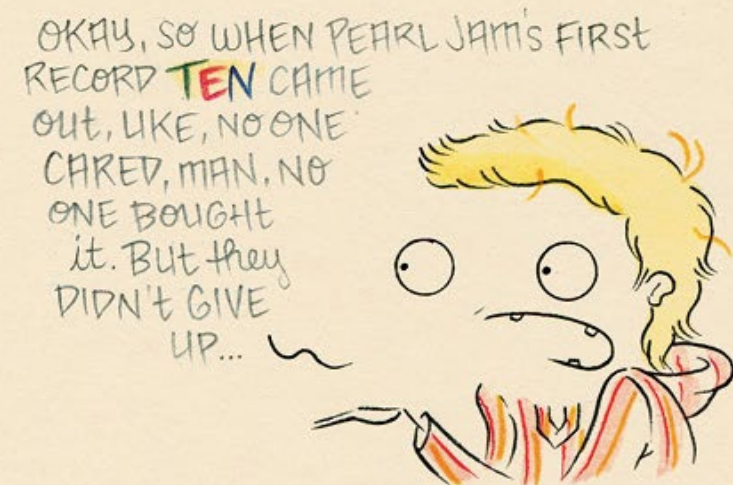 OKAY, SO WHEN PEARL JAM'S FIRST
RECORD TEN CAME
OUT, LIKE, NO ONE
CARED, MAN, NO
ONE BOUGHT
it. BUT they
DIDN't GIVE
UP...